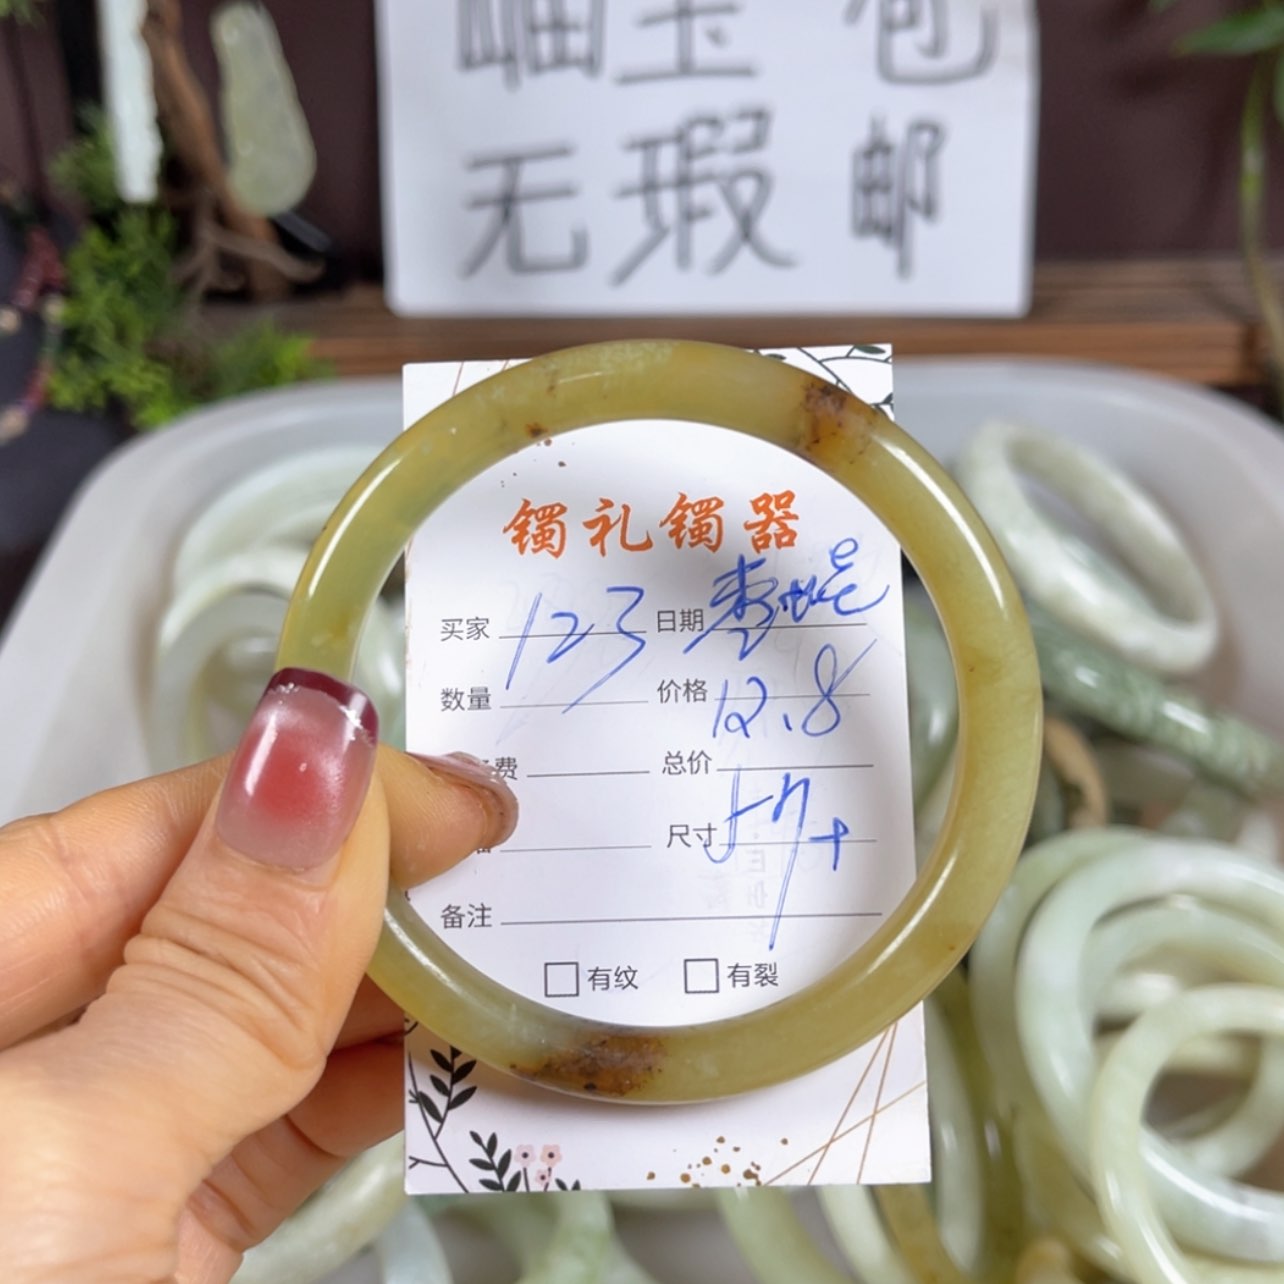 岫玉 包
无瑕 邮
镯礼镯器
买家 123 日期
数量 价格 12.8
费 总价
尺寸 57+
备注
有纹 有裂